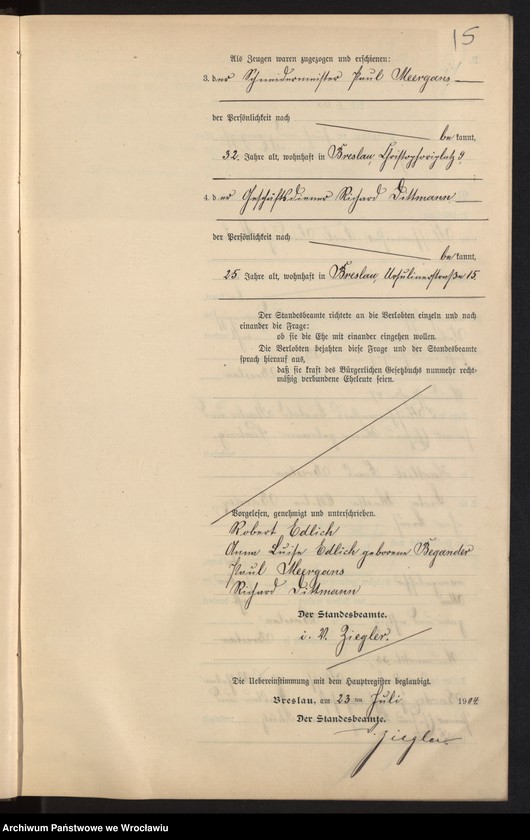 15
Als Zeugen waren zugezogen und erschienen:
3. der Schneidermeister Paul Meergans
der Persönlichkeit nach
be kannt,
32 Jahre alt, wohnhaft in Breslau, Christophoriplatz 9
4. der Geschäftsdiener Richard Dittmann
der Persönlichkeit nach
be kannt,
25 Jahre alt, wohnhaft in Breslau, Ursulinerstraße 15
Der Standesbeamte richtete an die Verlobten einzeln und nach
einander die Frage:
ob sie die Ehe mit einander eingehen wollen.
Die Verlobten bejahten diese Frage und der Standesbeamte
sprach hierauf aus,
daß sie kraft des Bürgerlichen Gesetzbuchs nunmehr recht-
mäßig verbundene Eheleute seien.
Vorgelesen, genehmigt und unterschrieben.
Robert Edlich
Anna Luise Edlich geborene Begander
Paul Meergans
Richard Dittmann
Der Standesbeamte.
i. V. Ziegler.
Die Uebereinstimmung mit dem Hauptregister beglaubigt.
Breslau, am 23 ten Juli 1904
Der Standesbeamte.
Ziegler
Archiwum Państwowe we Wrocławiu